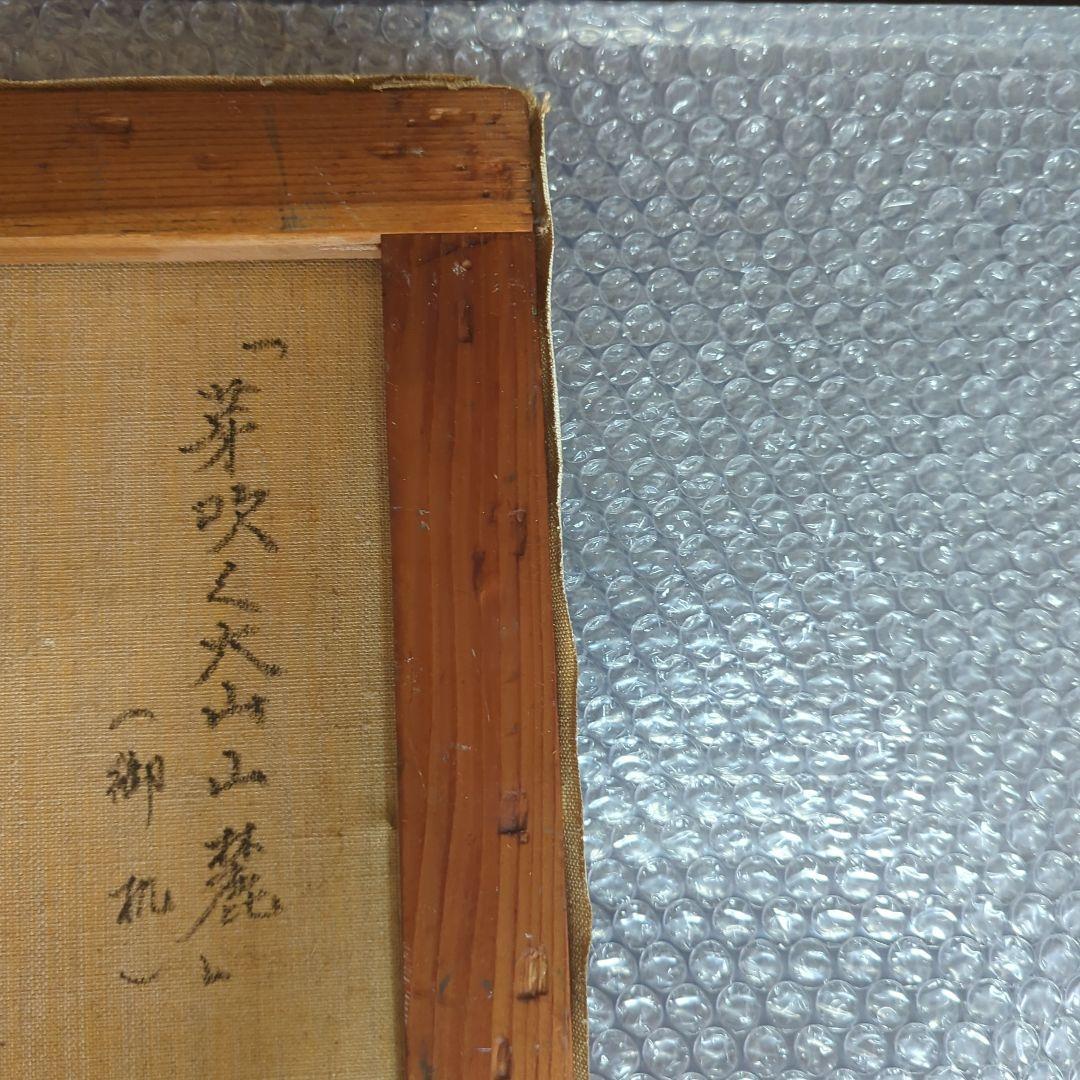 「芽吹く大山山麓」
(御机)